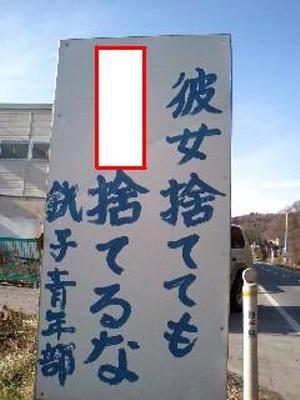 彼女捨てても
捨てるな
銚子青年部